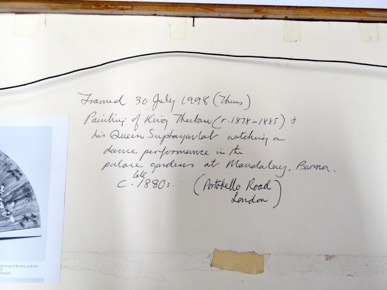 Framed 30 July 1998 (Thurs)
Painting of King Thebaw (r. 1878-1885) &
his Queen Supyayarlat watching a
dance performance in the
palace gardens at Mandalay, Burma.
late
c. 1880s. (Portobello Road
London)